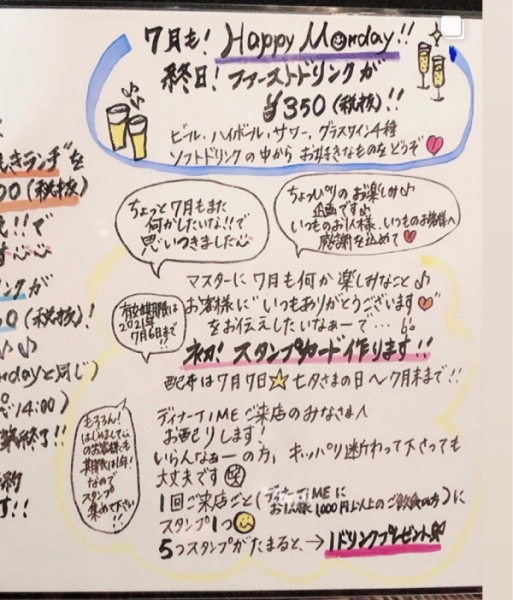 7月も! Happy Monday!!
終日! ファーストドリンクが
¥350(税抜)!!
ビール・ハイボール・サワー、グラスワイン4種
ソフトドリンクの中から お好きなものをどうぞ
ちょっと7月もまた
何かしたいな!!で
思いつきました
ちょっぴりのお楽しみ♪
企画です♪
いつものお1人様、いつものお客様へ
感謝を込めて
マスターに 7月も何か 楽しみなこと♪
お客様に"いつもありがとうございます
をお伝えしたいなぁーで…
有効期限は
2021年
7月6日まで!!
ネカ! スタンプカード作ります!!
配布は7月7日☆七夕さまの日〜7月末まで!!
ディナーTIMEご来店のみなさまへ
お配りします!
いらんなぁーの方、キッパリ断わって下さっても
大丈夫です 笑
もちろん!
はじめまして
のお客様も
期限は1年!
なので
スタンプ
集めて下さい
!!
1回ご来店ごと(ディナーTIMEに
お1人様1000円以上のご飲食の方)に
スタンプ1つ
5つスタンプがたまると、→1ドリンクプレゼント
きランチ"を
00(税抜)
!!で
す
ングが
0(税抜)!
♪♪
ndayと同じ)
14:00)
終了!!
約
す!!